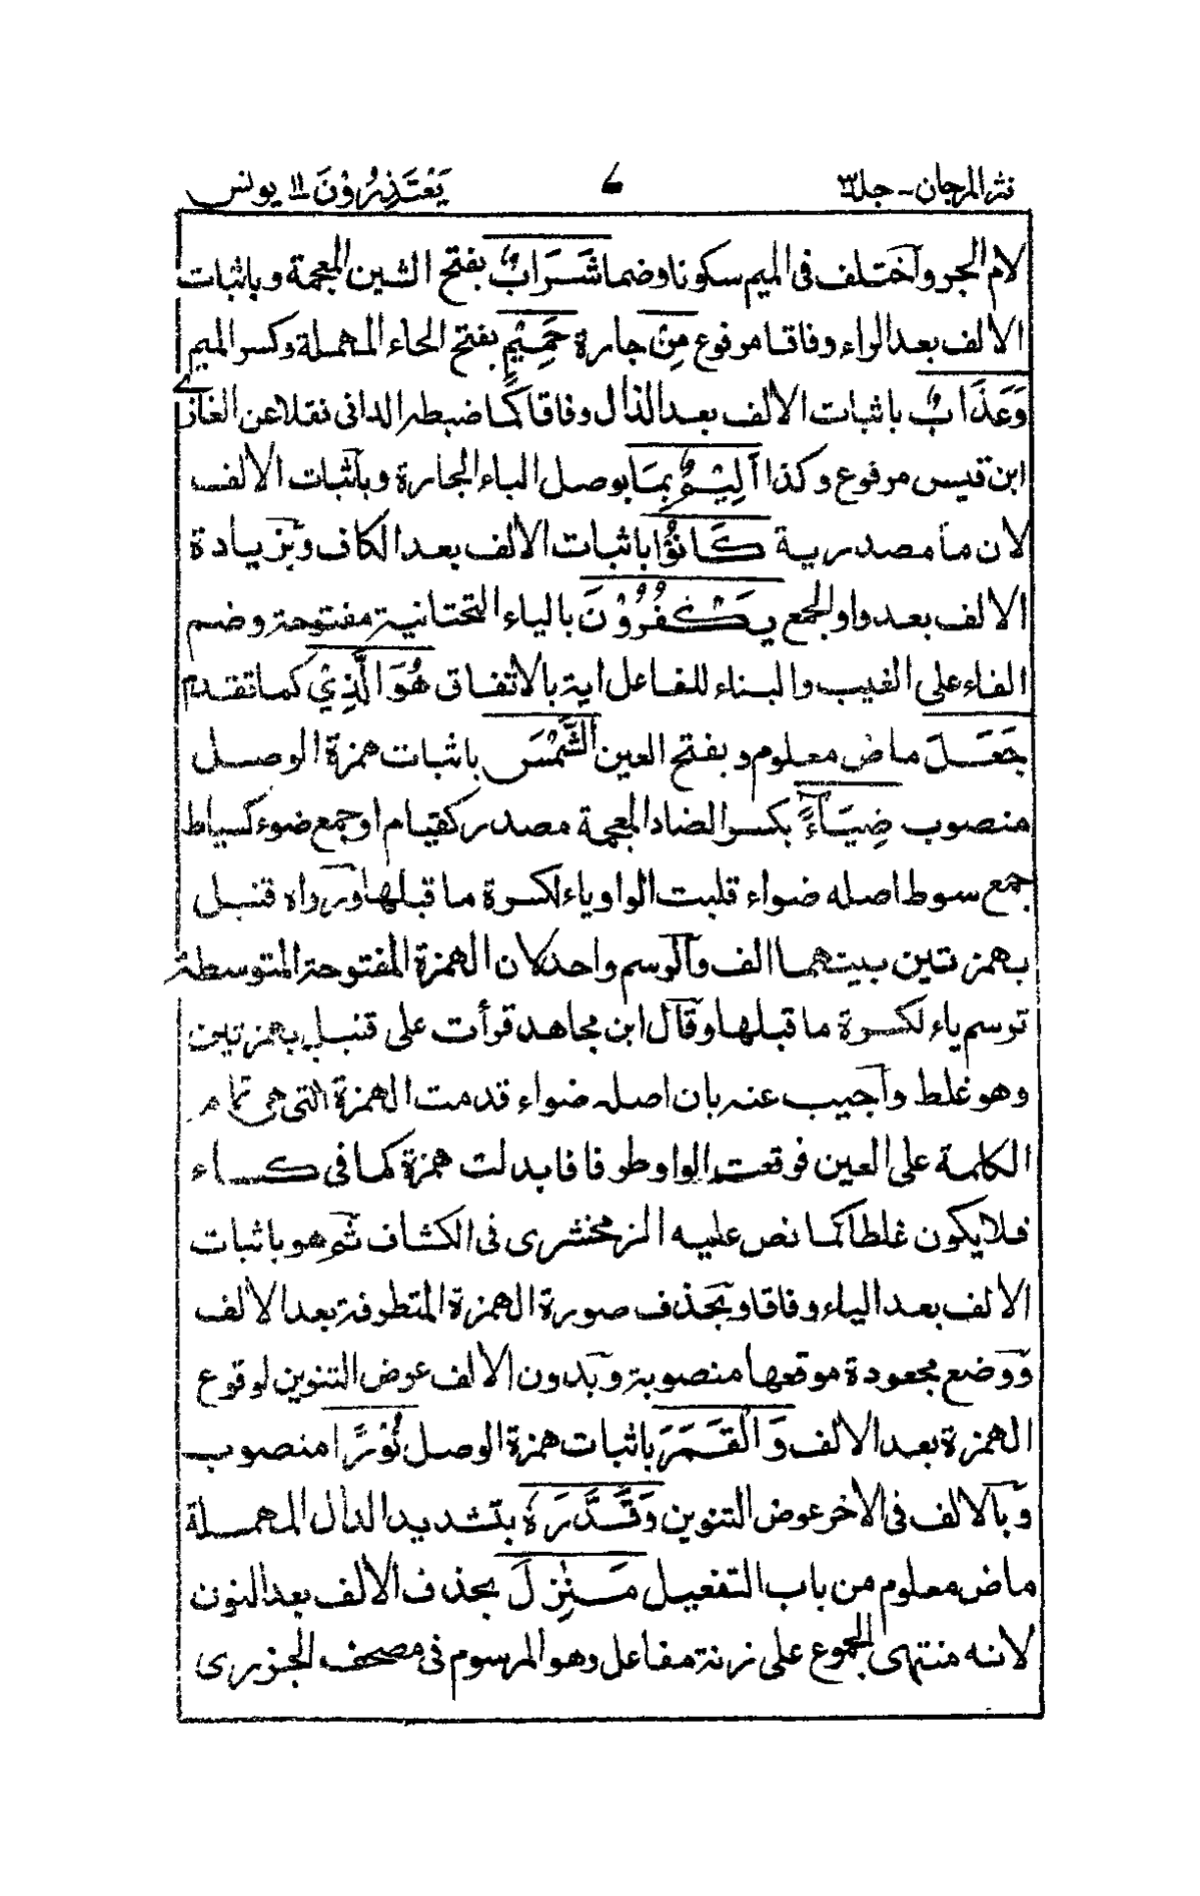 نثر المرجان - جلد ٣ ٦ يَعْتَذِرُوْنَ ١١ يونس
لام الجر واختلف فى الميم سكونا وضما شَرَابٌ بفتح الشين المعجمة وباثبات
الالف بعد الراء وفاقا مرفوع مِنْ جارة حَمِيْمٍ بفتح الحاء المهملة وكسر الميم
وَعَذَابٌ باثبات الالف بعد الذال وفاقا كما ضبطه الدانى نقلا عن الغازى
ابن قيس مرفوع وكذا اَلِيْمٌ بِمَا بوصل الباء الجارة وباثبات الالف
لان ما مصدرية كَانُوْا باثبات الالف بعد الكاف وبزيادة
الالف بعد واو الجمع يَكْفُرُوْنَ بالياء التحتانية مفتوحة وضم
الفاء على الغيب والبناء للفاعل اية بالاتفاق هُوَ الَّذِيْ كما تقدم
جَعَلَ ماض معلوم وبفتح العين الشَّمْسَ باثبات همزة الوصل
منصوب ضِيَآءً بكسر الضاد المعجمة مصدر كقيام او جمع ضوء كسياط
جمع سوط اصله ضواء قلبت الواو ياء لكسرة ما قبلها ورواه قنبل
بهمزتين بينهما الف والرسم واحد لان الهمزة المفتوحة المتوسطة
ترسم ياء لكسرة ما قبلها وقال ابن مجاهد قرأت على قنبل بهمزتين
وهو غلط واجيب عنه بان اصله ضواء قدمت الهمزة التى هى
الكلمة على العين فوقعت الواو طرفا فابدلت همزة كما فى كساء
فلا يكون غلطا كما نص عليه الزمخشرى فى الكشاف ثم هو باثبات
الالف بعد الياء وفاقا وبحذف صورة الهمزة المتطرفة بعد الالف
ووضع مجعودة موقعها منصوبة وبدون الالف عوض التنوين لوقوع
الهمزة بعد الالف وَالْقَمَرَ باثبات همزة الوصل نُوْرًا منصوب
وبالالف فى الاخر عوض التنوين وَقَدَّرَهٗ بتشديد الدال المهملة
ماض معلوم من باب التفعيل مَنٰزِلَ بحذف الالف بعد النون
لانه منتهى الجموع على زنة مفاعل وهو المرسوم فى مصحف الجزرى